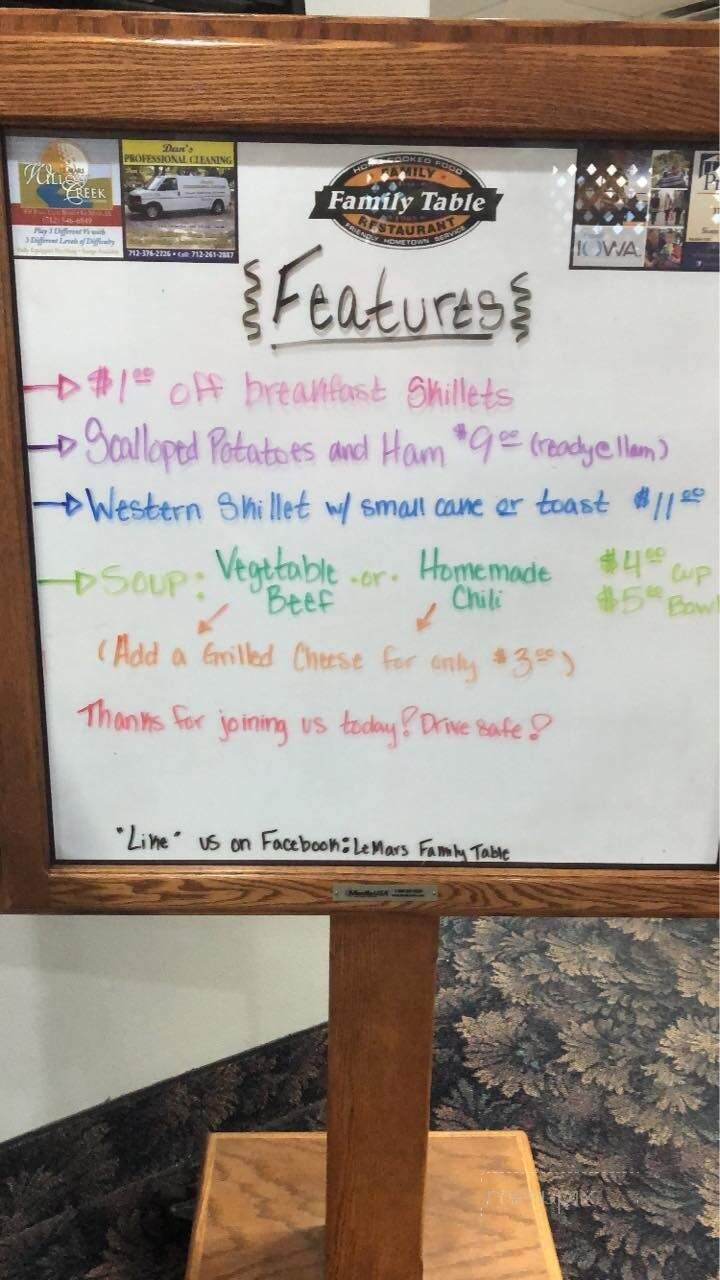 Willow Creek
(712) 546-6849
Play 3 Different 9's with
3 Different Levels of Difficulty
Dan's
PROFESSIONAL CLEANING
712-376-2226 • Cell: 712-261-2887
HOME COOKED FOOD
FAMILY
Family Table
RESTAURANT
FRIENDLY HOMETOWN SERVICE
IOWA
Features
$1.00 off breakfast Skillets
Scalloped Potatoes and Ham $9.00 (ready@11am)
Western Skillet w/ small cake or toast $11.00
Soup: Vegetable Beef -or- Homemade Chili $4.00 Cup
$5.00 Bowl
(Add a Grilled Cheese for only $3.00)
Thanks for joining us today! Drive safe!
"Like" us on Facebook: LeMars Family Table